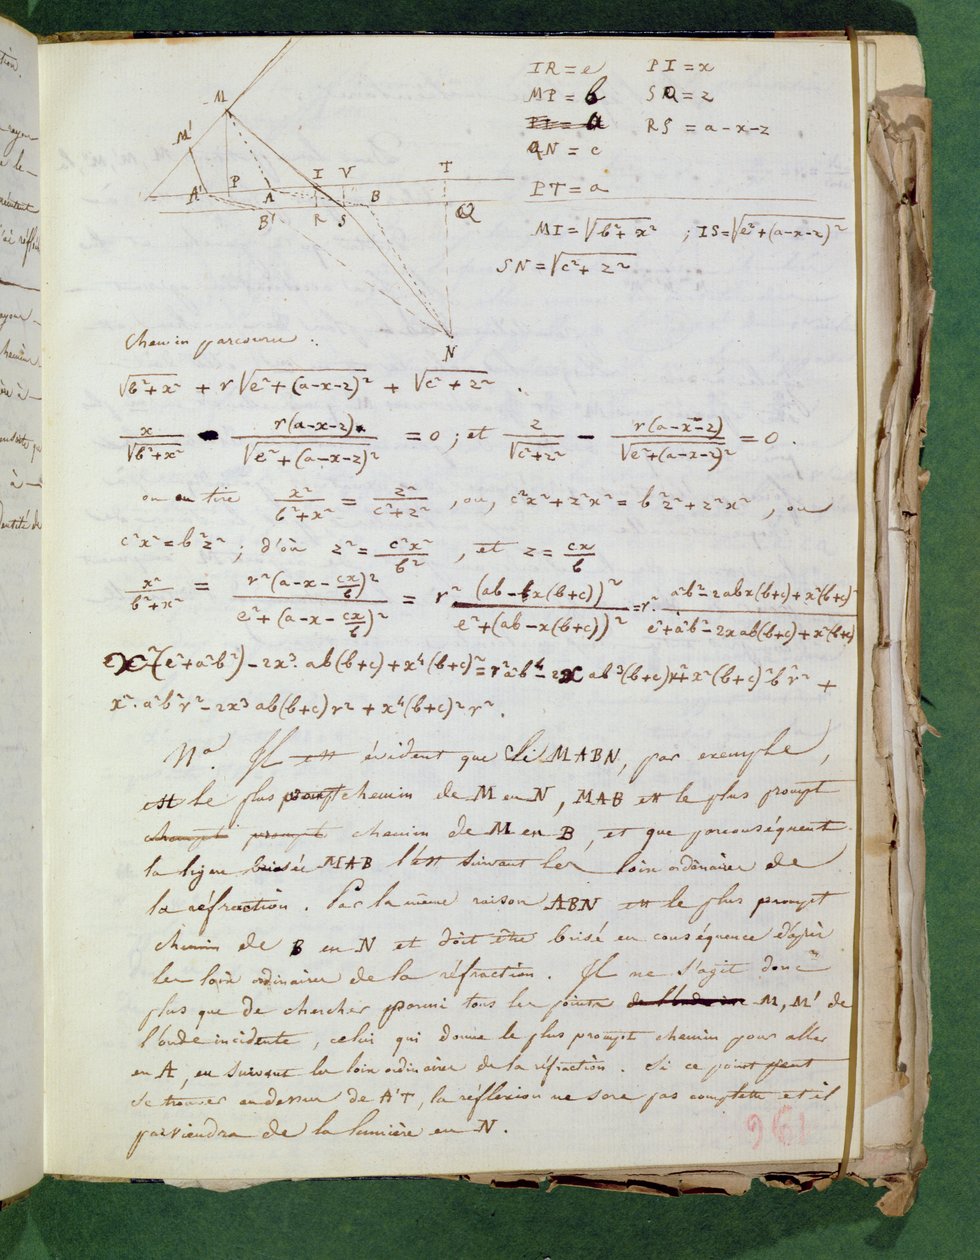 IR = e PI = x
MP = b SQ = z
PI = a RS = a-x-z
QN = c
PT = a
MI = √(b²+x²) ; IS = √(e²+(a-x-z)²)
SN = √(c²+z²)
M
M'
A' P A I V B T
B' R S Q
N
Chemin parcouru :
√(b²+x²) + r√(e²+(a-x-z)²) + √(c²+z²) .
x/√(b²+x²) - r(a-x-z)/√(e²+(a-x-z)²) = 0 ; et z/√(c²+z²) - r(a-x-z)/√(e²+(a-x-z)²) = 0 .
on en tire x²/(b²+x²) = z²/(c²+z²) , ou, c²x²+z²x² = b²z²+z²x² , ou
c²x² = b²z² ; d'où z² = c²x²/b² , et z = cx/b
x²/(b²+x²) = r²(a-x-cx/b)²/(e²+(a-x-cx/b)²) = r² (ab-x(b+c))²/(e²+(ab-x(b+c))²) = r² . (a²b²-2abx(b+c)+x²(b+c)²)/(e²+a²b²-2xab(b+c)+x²(b+c)²)
x²(e²+a²b²)-2x³.ab(b+c)+x⁴(b+c)² = r²a²b⁴-2x ab³(b+c)r²+x²(b+c)²b²r² +
x².a²b²r²-2x³ab(b+c)r²+x⁴(b+c)²r² .
Nª. Il est évident que si MABN, par exemple,
est le plus prompt chemin de M en N, MAB est le plus prompt
chemin prompt chemin de M en B, et que par conséquent
la ligne brisée MAB l'est suivant les loix ordinaires de
la réfraction. Par la même raison ABN est le plus prompt
chemin de B en N et doit être brisé en conséquence d'après
les loix ordinaires de la réfraction. Il ne s'agit donc
plus que de chercher parmi tous les points de l'onde in M, M' de
l'onde incidente, celui qui donne le plus prompt chemin pour aller
en A, en suivant les loix ordinaires de la réfraction. Si ce point peut
se trouver au dessus de A'T, la réflexion ne sera pas complette et il
parviendra de la lumière en N.
196